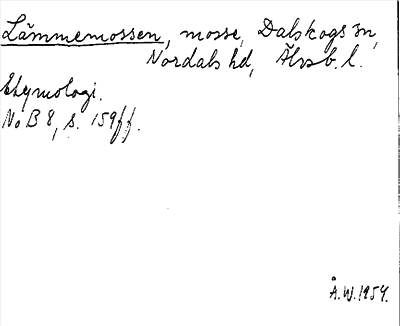 Lämmemossen, mosse, Dalskogs sn,
Nordals hd, Älvsb. l.
Etymologi.
NoB 8, s. 159ff.
Å.W. 1954.